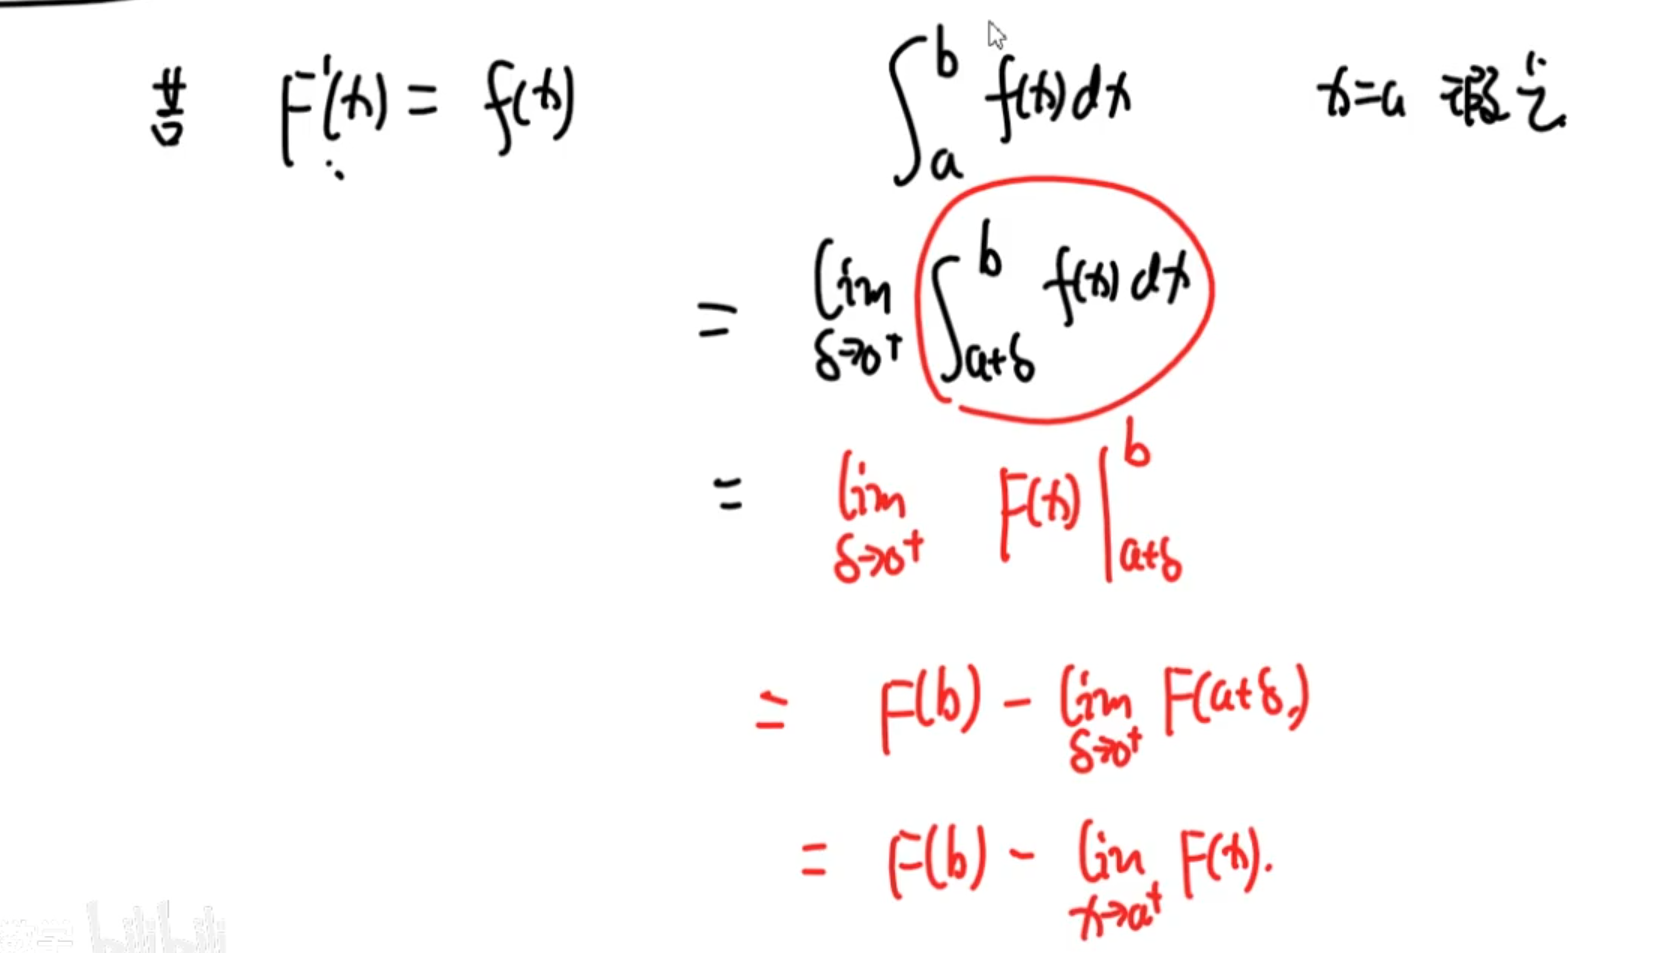 若 F'(x) = f(x) ∫_a^b f(x) dx x=a 瑕点
= lim_{δ→0⁺} ∫_{a+δ}^b f(x) dx
= lim_{δ→0⁺} F(x) |_{a+δ}^b
= F(b) - lim_{δ→0⁺} F(a+δ)
= F(b) - lim_{x→a⁺} F(x).
数学 bilibili